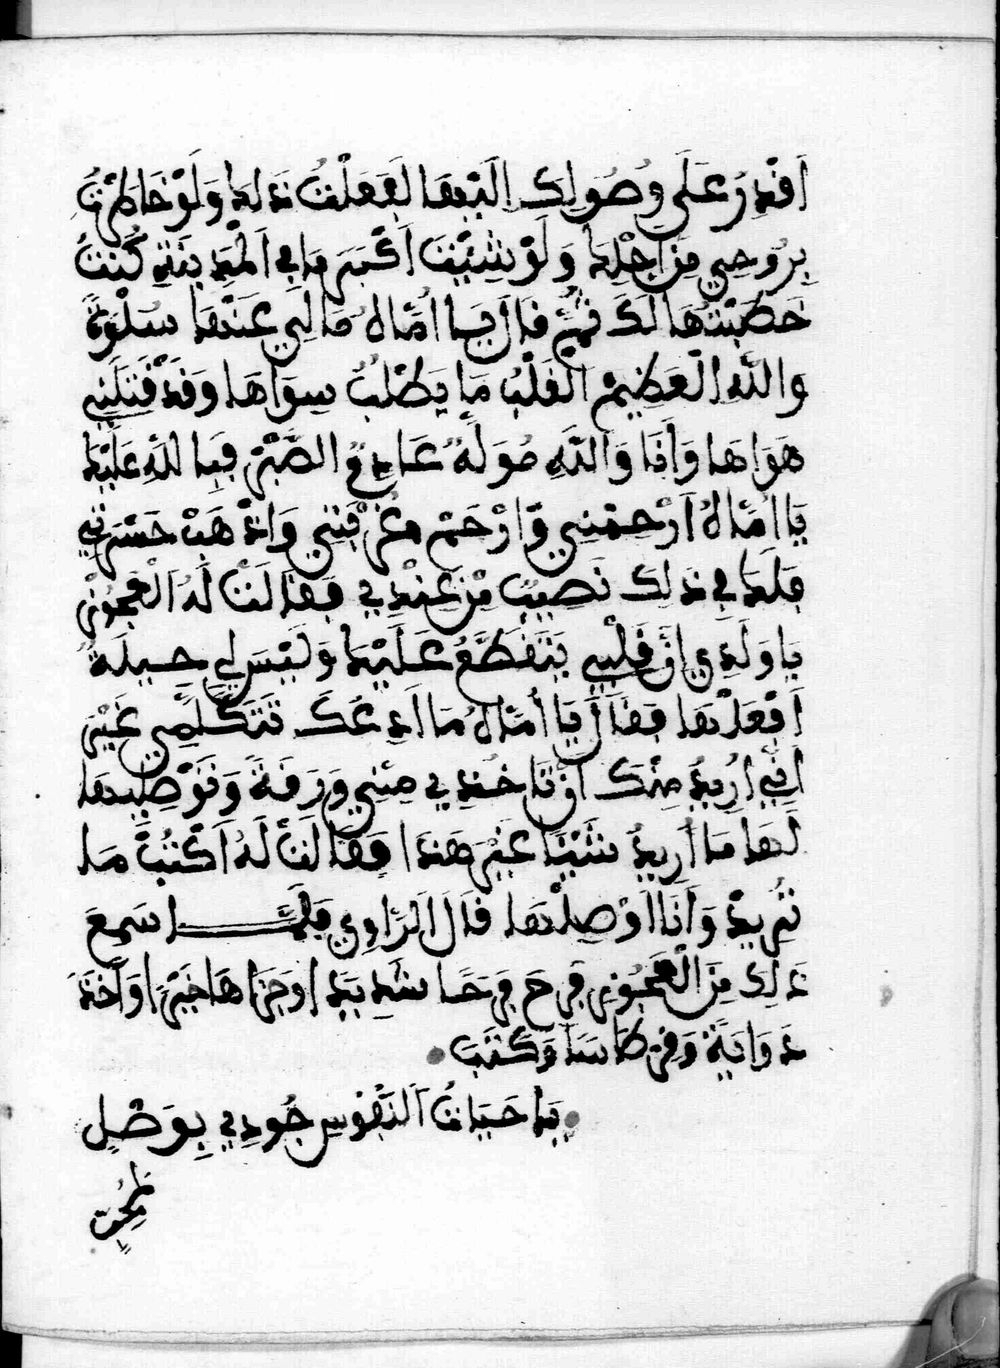 اَقْدِرُ عَلَى وُصُولِكَ اِلَيْهَا لَفَعَلْتُ ذَلِكَ وَلَوْ خَاطَرْتُ
بِرُوحِي مِنْ اَجْلِكَ وَلَوْ شِيْتَ اَكْبَرَ مَا فِي الْمَدِينَةِ كُنْتُ
خَطَبْتُهَا لَكَ ثُمَّ قَالَ يَا اُمَّاهُ مَا لِي عَنْهَا سَلْوَةً
وَاللَّهِ الْعَظِيمْ الْقَلْبُ مَا يَطْلُبُ سِوَاهَا وَقَدْ قَتَلَنِي
هَوَاهَا وَأَنَا وَاللَّهِ مُولَهُ عَادِمُ الصَّبْرِ فَبِاللَّهِ عَلَيْكِ
يَا اُمَّاهُ اَرْحَمْنِي وَارْحَمْ غُرْبَتِي وَاذْهَبْ حَسْرَتِي
فَلَكِ فِي ذَلِكَ نَصِيبُ مِنْ عِنْدِي فَقَالَتْ لَهُ الْعَجُوزْ
يَا وَلَدِي اِنَّ قَلْبِي يَتَقَطَّعُ عَلَيْكَ وَلَيْسَ لِي حِيلَةٌ
اَفْعَلْهَا فَقَالَ يَا اُمَّاهُ مَا اَدَعُكَ تَتَكَلَّمِي غَيْرَ
اَنِّي اُرِيدُ مِنْكَ اَنْ تَاخُذِي مِنِّي وَرَقَةً وَتَوْصِلِيهَا
لَهَا مَا اُرِيدُ شَيْئًا غَيْرَ هَذَا فَقَالَتْ لَهُ اَكْتُبْ مَا
تُرِيدْ وَأَنَا اَوْصِلْهَا قَالَ الرَّاوِي فَلَمَّا سَمِعَ
ذَلِكَ مِنَ الْعَجُوزِ فَرِحَ فَرَحًا شَدِيدًا وَجَزَاهَا خَيْرًا وَأَخَذَ
دَوَايَةً وَقِرْطَاسًا وَكَتَبَ
يَا حَيَاتُ النُّفُوسِ جُودِي بِوَصْلٍ